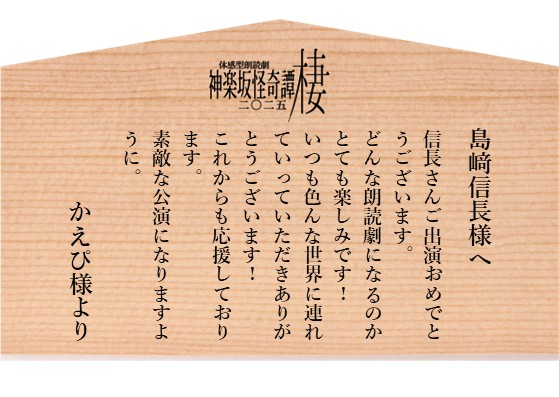 体感型朗読劇
神楽坂怪奇譚
棲
二〇二五
島﨑信長様へ
信長さんご出演おめでと
うございます。
どんな朗読劇になるのか
とても楽しみです！
いつも色んな世界に連れ
ていっていただきありが
とうございます！
これからも応援しており
ます。
素敵な公演になりますよ
うに。
かえぴ様より